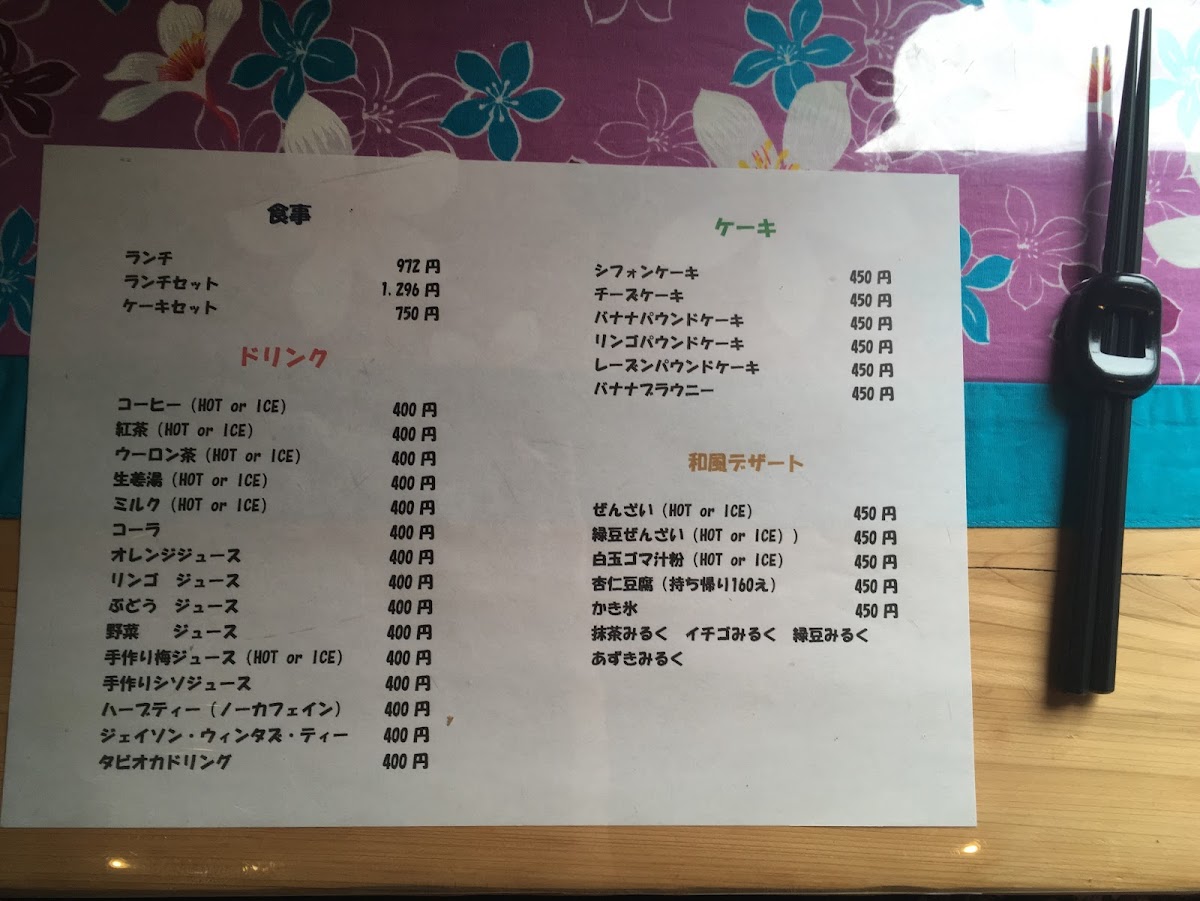 食事
ランチ 972円
ランチセット 1.296円
ケーキセット 750円
ドリンク
コーヒー（HOT or ICE） 400円
紅茶（HOT or ICE） 400円
ウーロン茶（HOT or ICE） 400円
生姜湯（HOT or ICE） 400円
ミルク（HOT or ICE） 400円
コーラ 400円
オレンジジュース 400円
リンゴ　ジュース 400円
ぶどう　ジュース 400円
野菜　　ジュース 400円
手作り梅ジュース（HOT or ICE） 400円
手作りシソジュース 400円
ハーブティー（ノーカフェイン） 400円
ジェイソン・ウィンタズ・ティー 400円
タピオカドリング 400円
ケーキ
シフォンケーキ 450円
チーズケーキ 450円
バナナパウンドケーキ 450円
リンゴパウンドケーキ 450円
レーズンパウンドケーキ 450円
バナナブラウニー 450円
和風デザート
ぜんざい（HOT or ICE） 450円
緑豆ぜんざい（HOT or ICE）） 450円
白玉ゴマ汁粉（HOT or ICE） 450円
杏仁豆腐（持ち帰り160え） 450円
かき氷 450円
抹茶みるく　イチゴみるく　緑豆みるく
あずきみるく